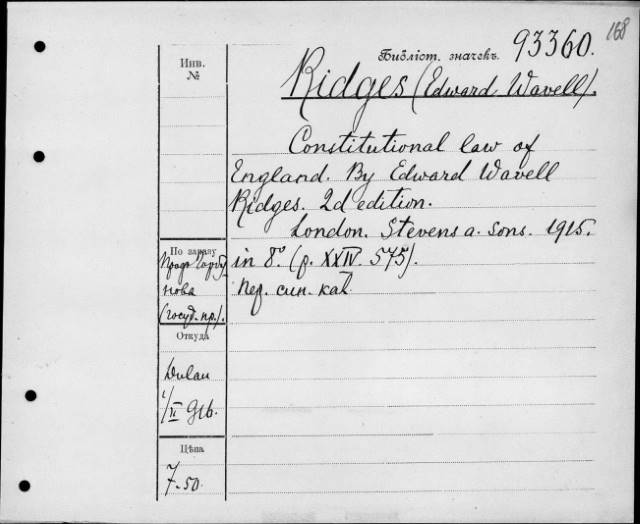 168
Библіот. значекъ. 93360.
Инв.
№
Ridges (Edward Wavell).
Constitutional law of
England. By Edward Wavell
Ridges. 2d edition.
London. Stevens a. Sons. 1915.
in 8°. (p. XXIV. 575).
Пер. син. кат.
По заказу
Проф. Горбу
нова
(госуд. пр.).
Откуда
Dulau
1/II 916.
Цѣна
7-50